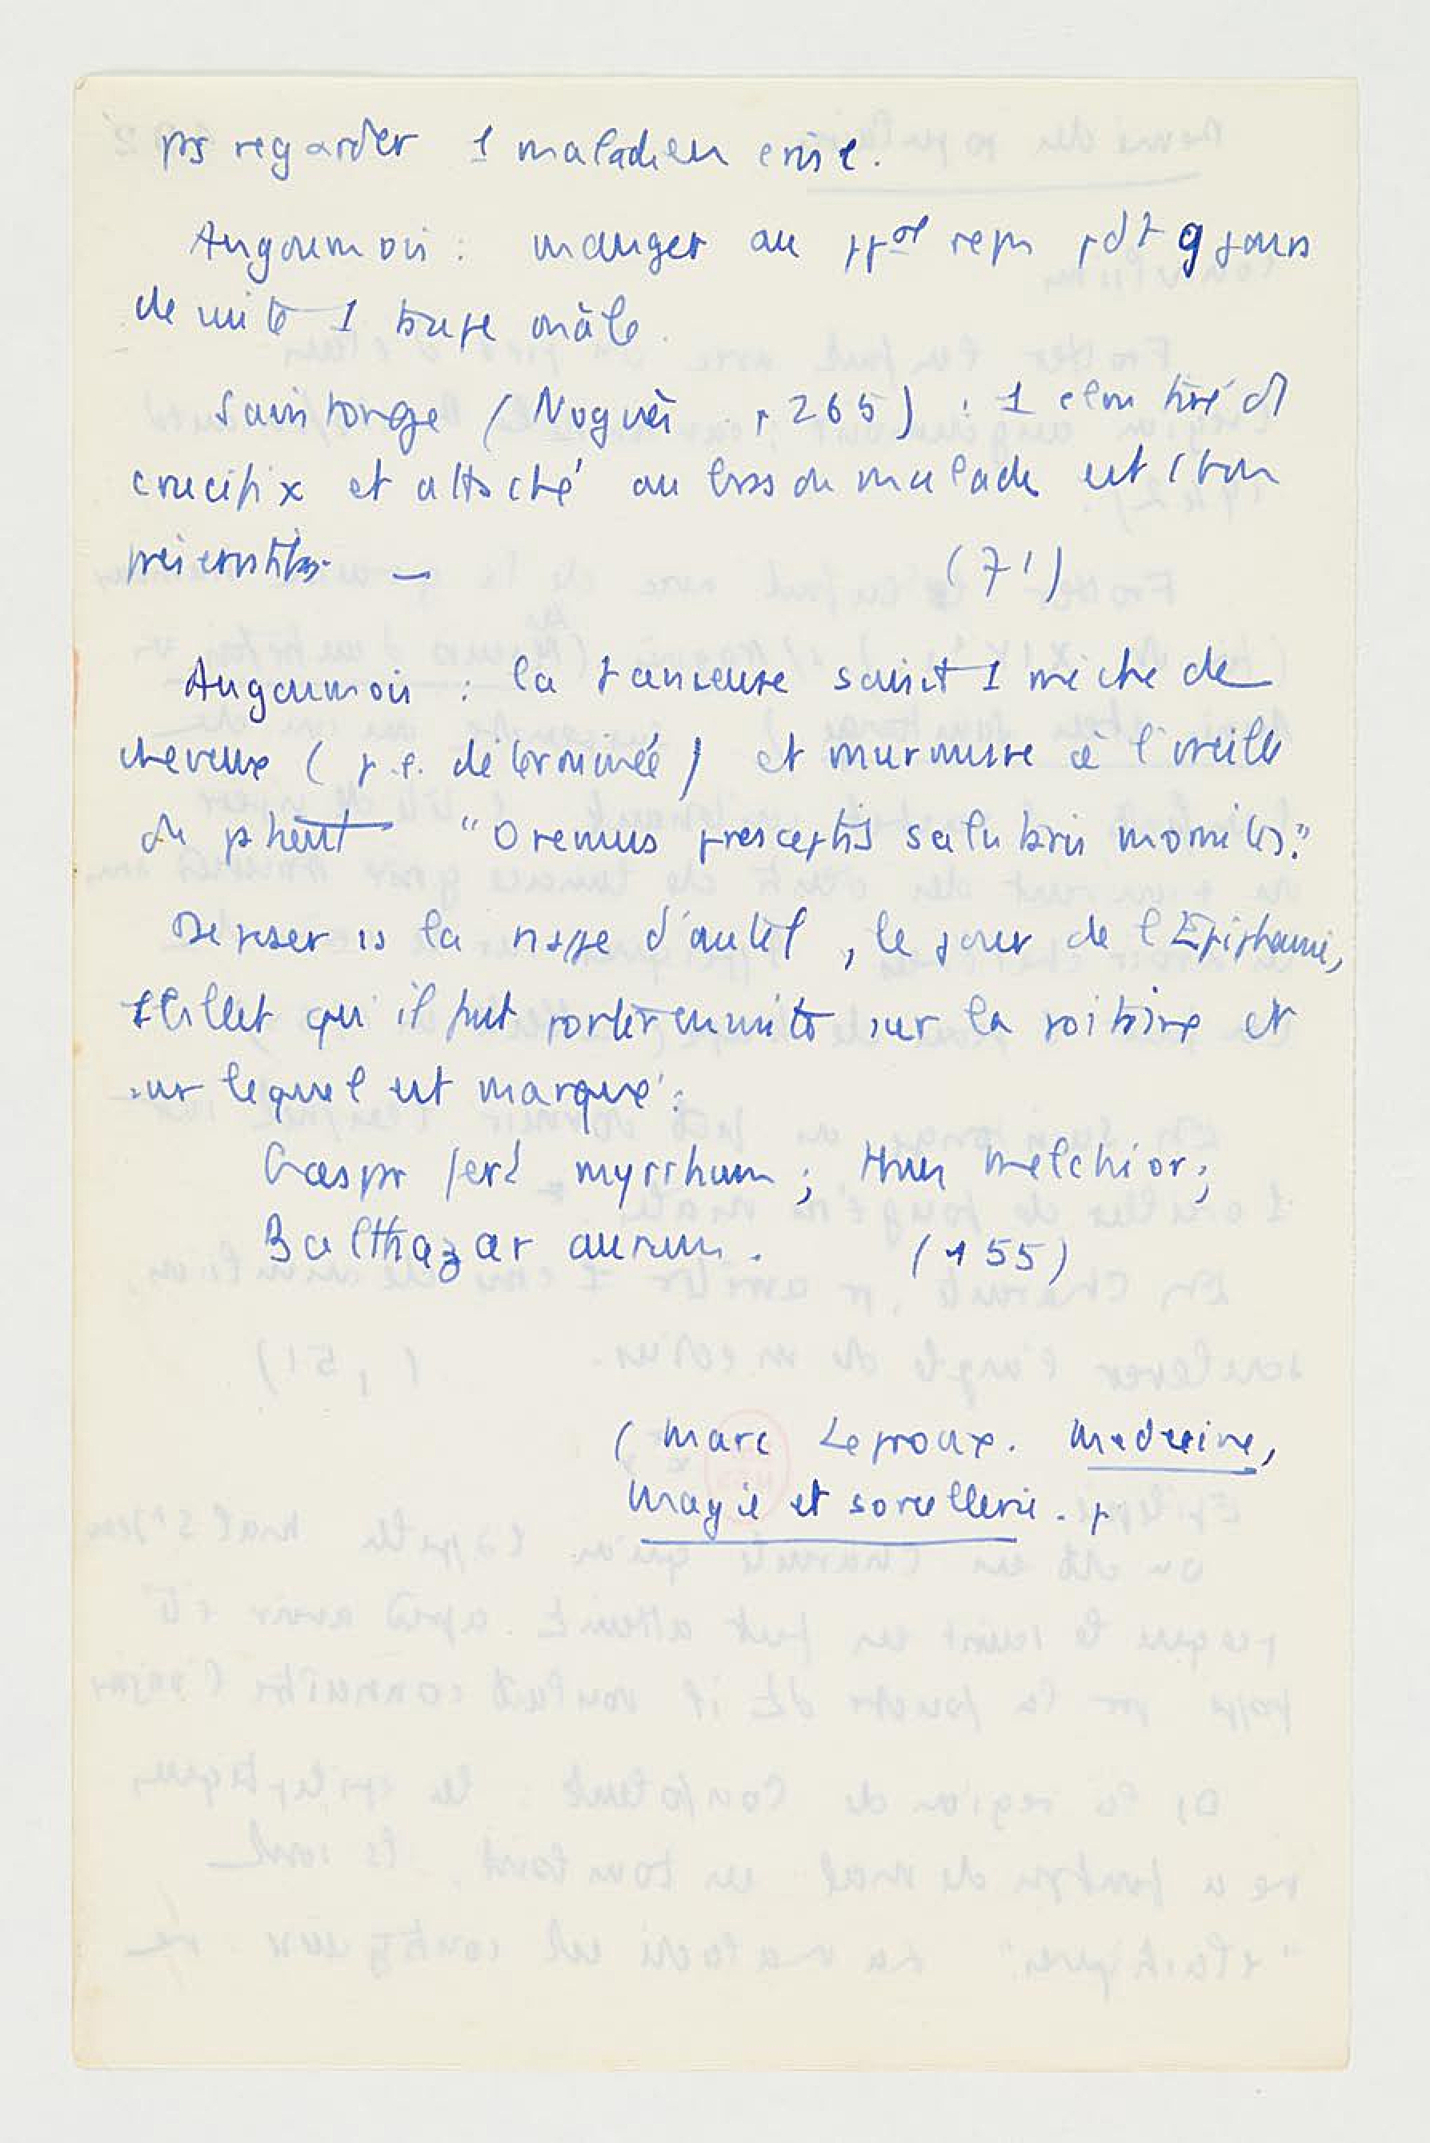 ps regarder 1 malade en crise.
Angoumois : manger au ppal repas pdt 9 jours
de suite 1 taupe mâle.
Saintonge (Noguès p 265) : 1 clou tiré d1
crucifix et attaché au bras du malade est 1 bon
préservatif —
(71)
Angoumois : la panseuse saisit 1 mèche de
cheveux (p.ê. déterminée) et murmure à l'oreille
du patient "Oremus preceptis salutaris moniti."
Déposer ss la nappe d'autel, le jour de l'Epiphanie,
1 billet qu'il faut porter ensuite sur la poitrine et
sur lequel est marqué :
Gaspar fert myrrham ; thus Melchior ;
Balthazar aurum. (155)
(Marc Leproux. Medecine,
Magie et sorcellerie. p